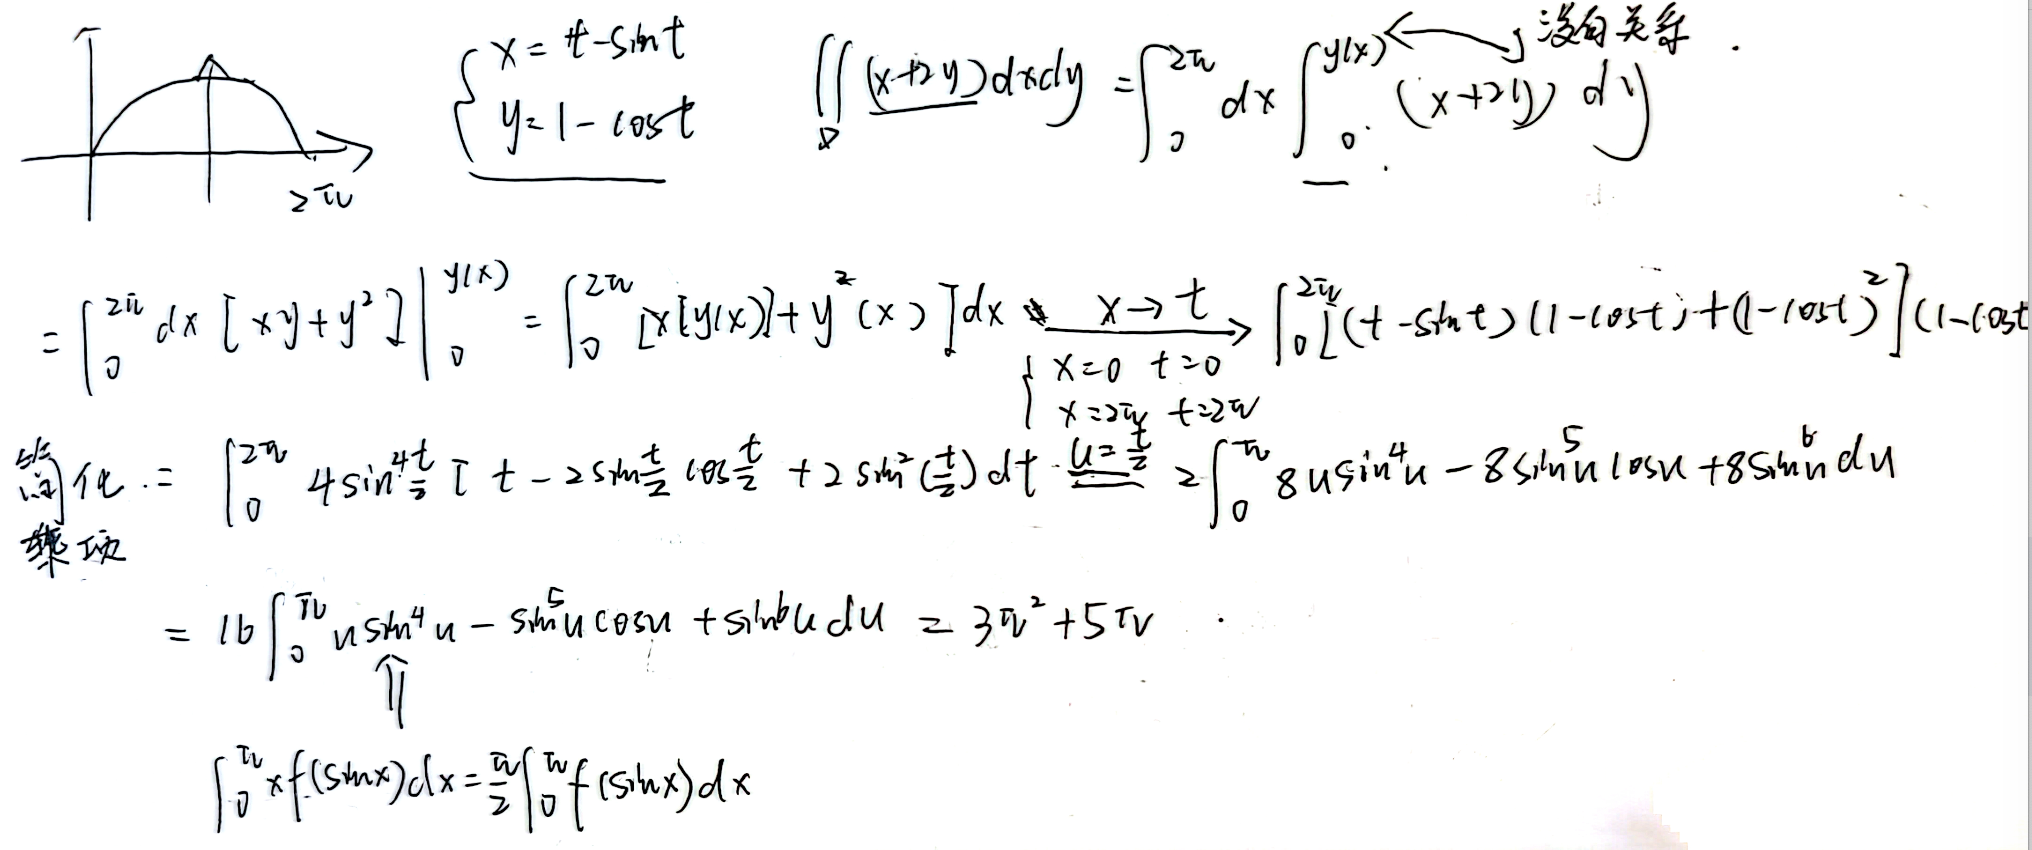 { x = t - sint
y = 1 - cost
∬_D (x+2y)dxdy = ∫_0^{2π} dx ∫_0^{y(x)} (x+2y) dy
没有关系.
2π
= ∫_0^{2π} dx [xy+y²] |_0^{y(x)} = ∫_0^{2π} [x[y(x)]+y²(x)]dx x→t ∫_0^{2π} [(t-sint)(1-cost)+(1-cost)²](1-cost
{ x=0 t=0
x=2π t=2π
简化 = ∫_0^{2π} 4sin⁴ t/2 [ t - 2sin t/2 cos t/2 + 2sin²(t/2) dt u=t/2 2∫_0^π 8usin⁴u - 8sin⁵u cosu + 8sin⁶u du
= 16∫_0^π usin⁴u - sin⁵ucosu + sin⁶u du = 3π²+5π
∫_0^π xf(sinx)dx = π/2 ∫_0^π f(sinx)dx